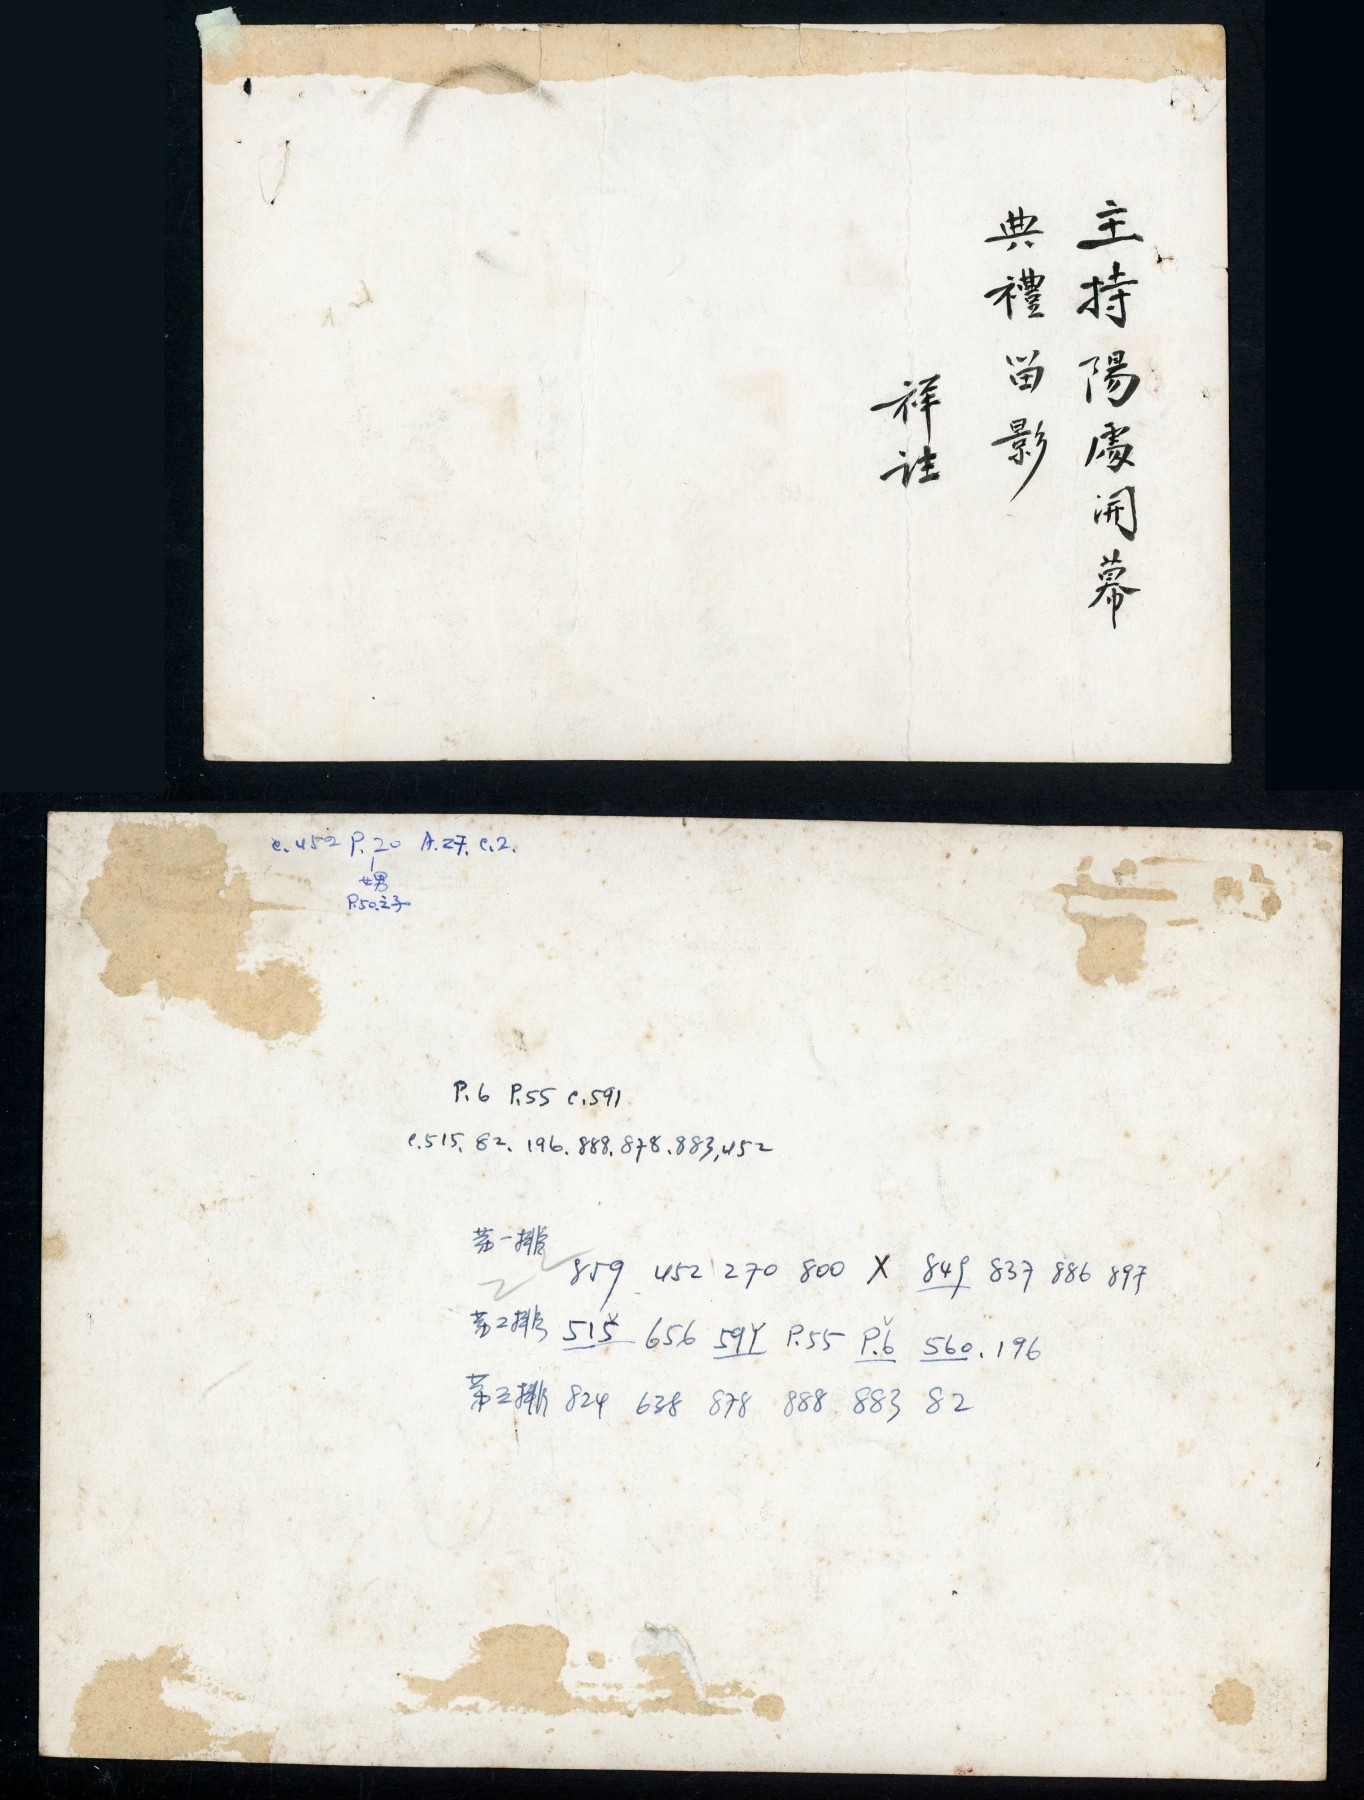 主持陽處開幕
典禮畄影
祥註
c.452 P.20 A.27. c.2.
P.50之子
P.6 P.55 c.591
c.515. 82. 196. 888. 878. 883, 452
第一排
859 452 270 800 X 849 837 886 897
第2排 515 656 591 P.55 P.6 560. 196
第三排 824 638 878 888 883 82